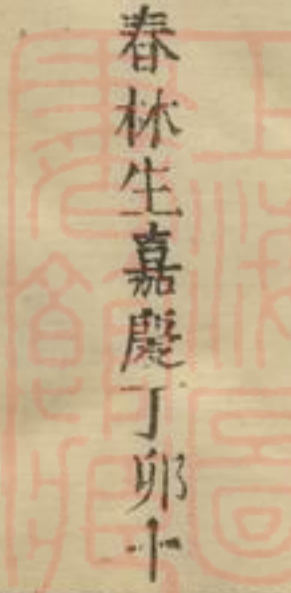 春林生嘉慶丁卯十